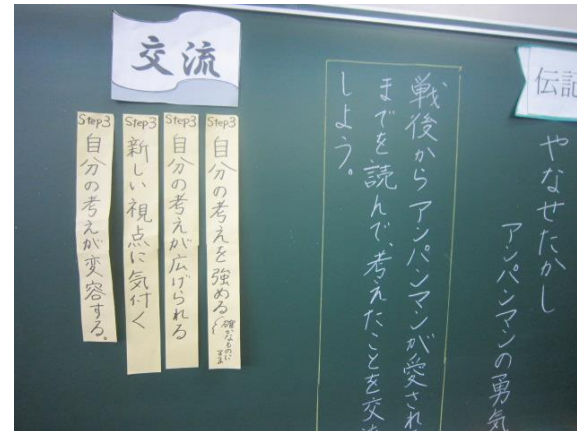 伝記
やなせたかし
アンパンマンの勇気
戦後からアンパンマンが愛され
までを読んで、考えたことを交流
しよう。
交流
Step3
自分の考えを強める
Step3
自分の考えが広げられる
Step3
新しい視点に気付く
Step3
自分の考えが変容する。